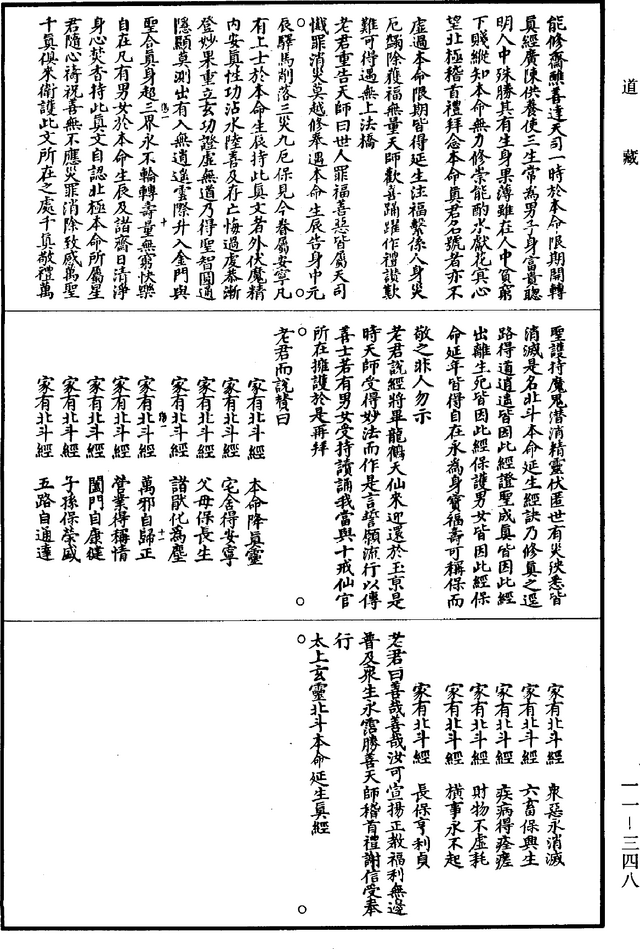 道藏
能修齋醮善達天司一時於本命限期開轉
真經廣陳供養使三生常為男子身富貴聰
明人中殊勝其有生身果薄雖在人中貧窮
下賤縱知本命無力修崇能酌水獻花冥心
望北極稽首禮拜念本命真君名號者亦不
虛過本命限期皆得延生注福繫係人身災
厄蠲除獲福無量天師歡喜踊躍作禮讚歎
難可得遇無上法橋
老君重告天師曰世人罪福善惡皆屬天司
懺罪消災莫越修奉遇本命生辰告身中元
辰驛馬削落三災九厄保見今眷屬安寧凡
有上士於本命生辰持此真文者外伏魔精
內安真性功沾水陸善及存亡悔過虔恭漸
登妙果重立玄功證虛無道乃得聖智圓通
隱顯莫測出有入無逍遙雲際升入金門與
聖合真身超三界永不輪轉壽量無窮快樂
自在凡有男女於本命生辰及諸齋日清淨
身心焚香持此真文自認北極本命所屬星
君隨心禱祝善無不應災罪消除致感萬聖
千真俱來衛護此文所在之處千真敬禮萬
十
聖護持魔鬼潛消精靈伏匿世有災殃悉皆
消滅是名北斗本命延生經訣乃修真之逕
路得道逍遙皆因此經證聖成真皆因此經
出離生死皆因此經保護男女皆因此經保
命延年皆得自在永為身寶福壽可稱保而
敬之非人勿示
老君說經將畢龍鶴天仙來迎還於玉京是
時天師受得妙法而作是言誓願流行以傳
善士若有男女受持讀誦我當與十戒仙官
所在擁護於是再拜
老君而說讚曰
家有北斗經 本命降真靈
家有北斗經 宅舍得安寧
家有北斗經 父母保長生
家有北斗經 諸猒化為塵
家有北斗經 萬邪自歸正
十一
家有北斗經 營業得稱情
家有北斗經 闔門自康健
家有北斗經 子孫保榮盛
家有北斗經 五路自通達
家有北斗經 眾惡永消滅
家有北斗經 六畜保興生
家有北斗經 疾病得痊瘥
家有北斗經 財物不虛耗
家有北斗經 橫事永不起
家有北斗經 長保亨利貞
老君曰善哉善哉汝可宣揚正教福利無邊
普及眾生永霑勝善天師稽首禮謝信受奉
行
太上玄靈北斗本命延生真經
一一—三四八